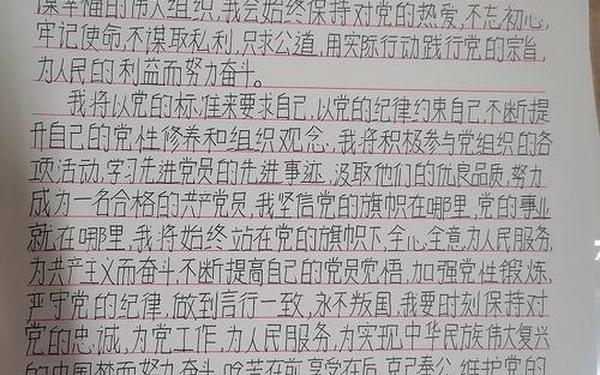 谋幸福的伟大组织,我会始终保持对党的热爱,不忘初心,
牢记使命,不谋取私利,只求公道,用实际行动践行党的宗旨,
为人民的利益而努力奋斗。
我将以党的标准来要求自己,以党的纪律约束自己,不断提
升自己的党性修养和组织观念,我将积极参与党组织的各
项活动,学习先进党员的先进事迹,汲取他们的优良品质,努力
成为一名合格的共产党员,我坚信党的旗帜在哪里,党的事业
就在哪里,我将始终站在党的旗帜下,全心全意,为人民服务,
为共产主义而奋斗,不断提高自己的党员觉悟,加强党性锻炼,
严守党的纪律,做到言行一致,永不叛国,我要时刻保持对
党的忠诚,为党工作,为人民服务,为实现中华民族伟大复兴
的中国梦而努力奋斗,吃苦在前,享受在后,克己奉公,维护党的